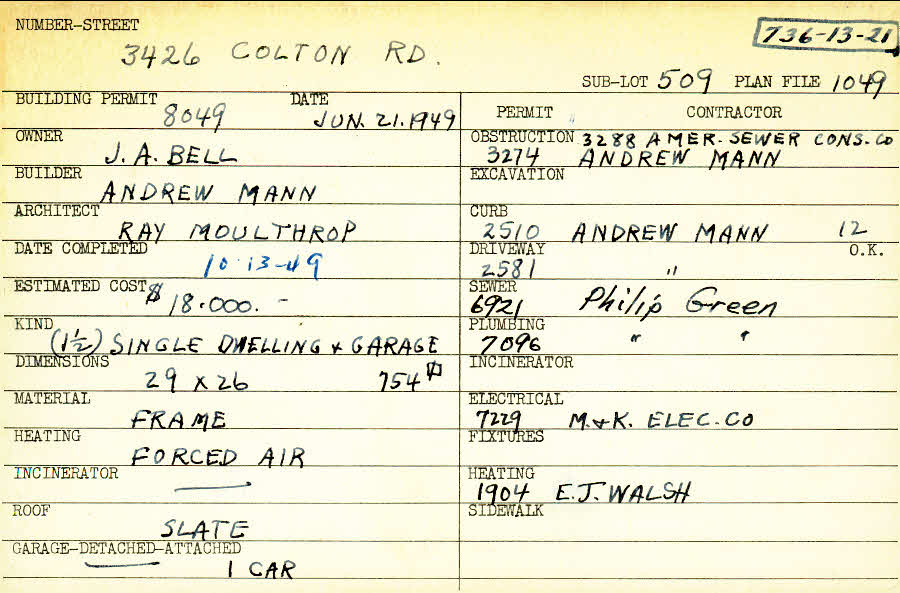 NUMBER-STREET
736-13-21
3426 COLTON RD.
SUB-LOT 509 PLAN FILE 1049
BUILDING PERMIT DATE
8049 JUN. 21. 1949
OWNER
J. A. BELL
BUILDER
ANDREW MANN
ARCHITECT
RAY MOULTHROP
DATE COMPLETED
10-13-49
ESTIMATED COST
$18.000. -
KIND
(1½) SINGLE DWELLING & GARAGE
DIMENSIONS
29 X 26 754
MATERIAL
FRAME
HEATING
FORCED AIR
INCINERATOR
ROOF
SLATE
GARAGE-DETACHED-ATTACHED
1 CAR
PERMIT CONTRACTOR
OBSTRUCTION 3288 AMER. SEWER CONS. CO
3274 ANDREW MANN
EXCAVATION
CURB
2510 ANDREW MANN 12
DRIVEWAY O.K.
2581 "
SEWER
6921 Philip Green
PLUMBING
7096 " "
INCINERATOR
ELECTRICAL
7229 M. & K. ELEC. CO
FIXTURES
HEATING
1904 E. J. WALSH
SIDEWALK